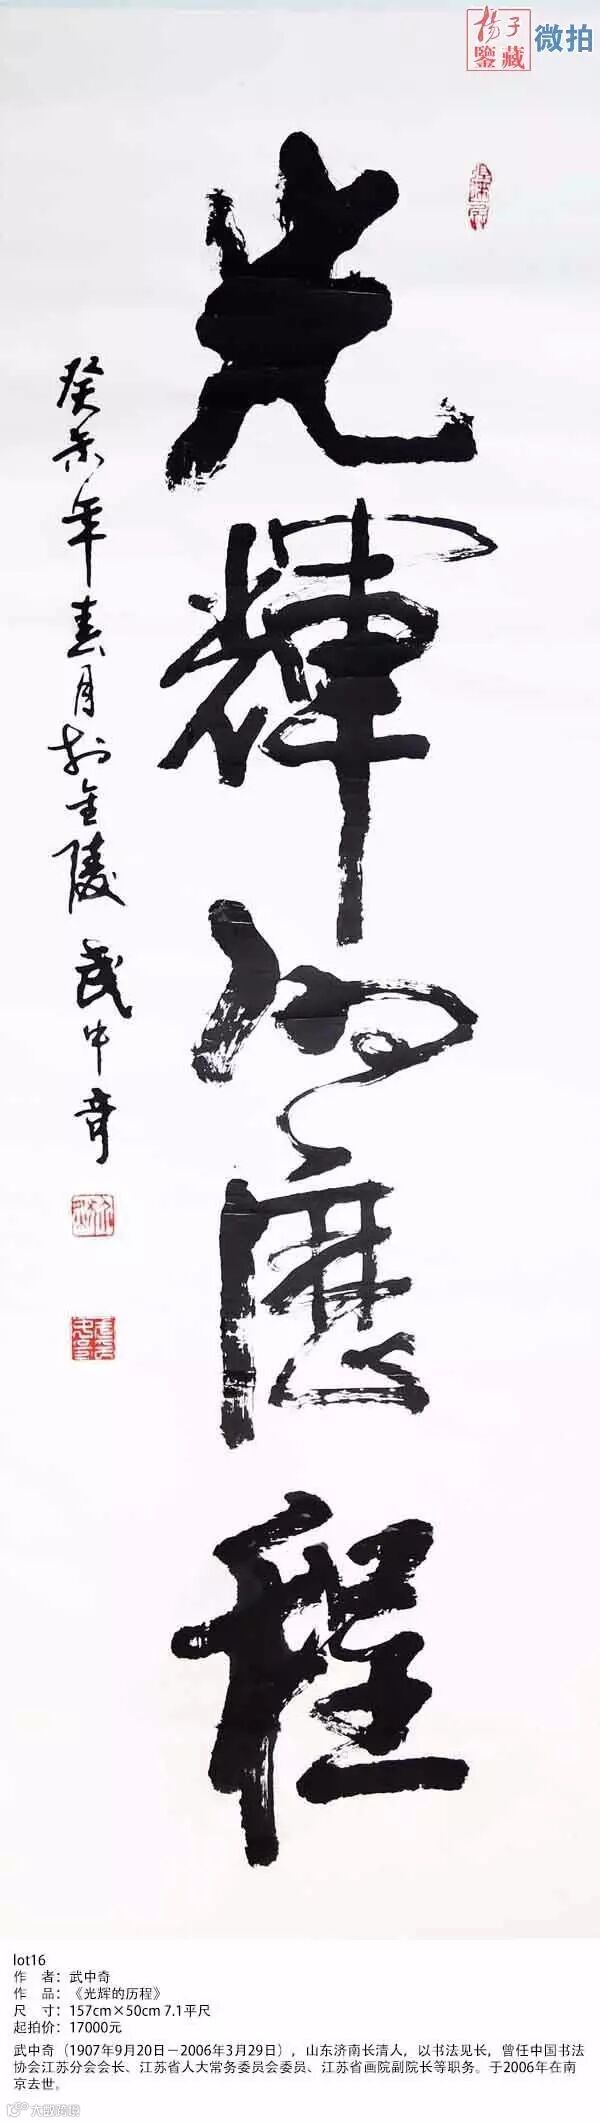 揚子
鑒藏
微拍
光輝的歷程
癸未年春月於金陵武中奇
lot16
作 者：武中奇
作 品：《光辉的历程》
尺 寸：157cm×50cm 7.1平尺
起拍价：17000元
武中奇（1907年9月20日－2006年3月29日），山东济南长清人，以书法见长，曾任中国书法
协会江苏分会会长、江苏省人大常务委员会委员、江苏省画院副院长等职务。于2006年在南
京去世。
大数跨境